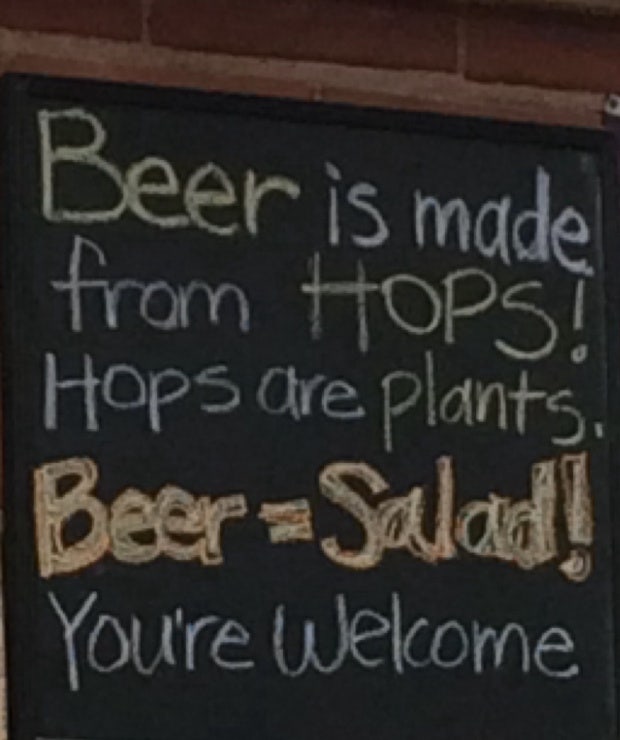 Beer is made
from HOPS!
Hops are plants.
Beer = Salad!
You're Welcome